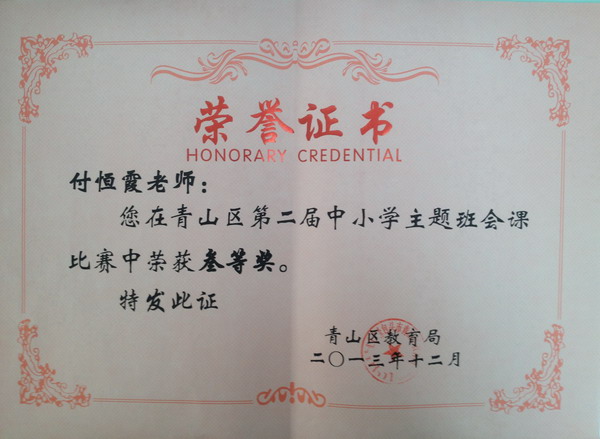 荣誉证书
HONORARY CREDENTIAL
付恒霞老师：
您在青山区第二届中小学主题班会课
比赛中荣获叁等奖。
特发此证
青山区教育局
二〇一三年十二月